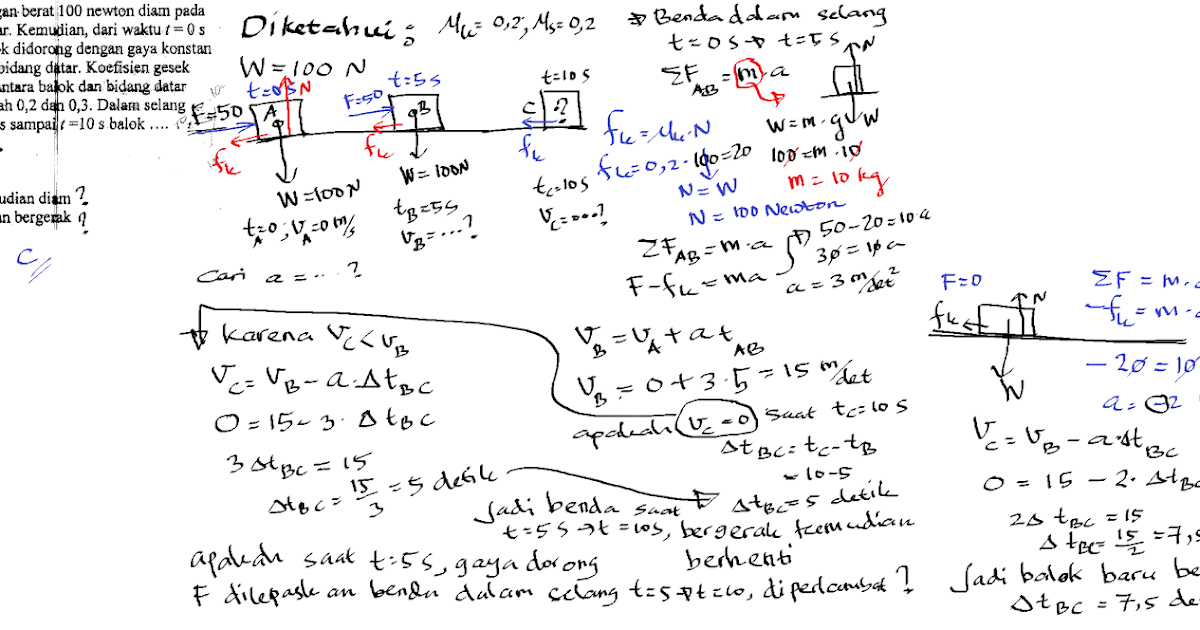 gan berat 100 newton diam pada
ar. Kemudian, dari waktu t = 0 s
k didorong dengan gaya konstan
bidang datar. Koefisien gesek
antara balok dan bidang datar
ah 0,2 dan 0,3. Dalam selang
s sampai t =10 s balok ....
udian diam ?
an bergerak ?
C
Diketahui : μk = 0,2, μs = 0,2
W = 100 N
t = 0 s N
F=50 A
fk
W = 100 N
t_A = 0 ; V_A = 0 m/s
t = 5 s
F=50 B
fk
W = 100 N
t_B = 5 s
V_B = ... ?
t = 10 s
C ?
fk
t_C = 10 s
V_C = ... ?
⇒ Benda ddam selang
t = 0 s → t = 5 s
ΣF_AB = m . a
N
W
W = m . g
100 = m . 10
m = 10 kg
fk = μk . N
fk = 0,2 . 100 = 20
N = W
N = 100 Newton
ΣF_AB = m . a
F - fk = ma
50 - 20 = 10 a
30 = 10 a
a = 3 m/det²
Cari a = ... ?
karena V_C < V_B
V_C = V_B - a . Δt_BC
0 = 15 - 3 . Δt_BC
3 Δt_BC = 15
Δt_BC = 15/3 = 5 detik
V_B = V_A + a t_AB
V_B = 0 + 3 . 5 = 15 m/det
apakah V_C = 0 saat t_C = 10 s
Δt_BC = t_C - t_B
= 10 - 5
Δt_BC = 5 detik
Jadi benda saat
t = 5 s → t = 10s, bergerak kemudian
berhenti
apakah saat t = 5 s, gaya dorong
F dilepaskan benda dalam selang t = 5 → t = 10, diperlambat ?
F = 0
fk
N
W
ΣF = m .
-fk = m .
- 20 = 10
a = -2
V_C = V_B - a . Δt_BC
0 = 15 - 2 . Δt_BC
2 Δ t_BC = 15
Δ t_BC = 15/2 = 7,5
Jadi balok baru be
Δt_BC = 7,5 de